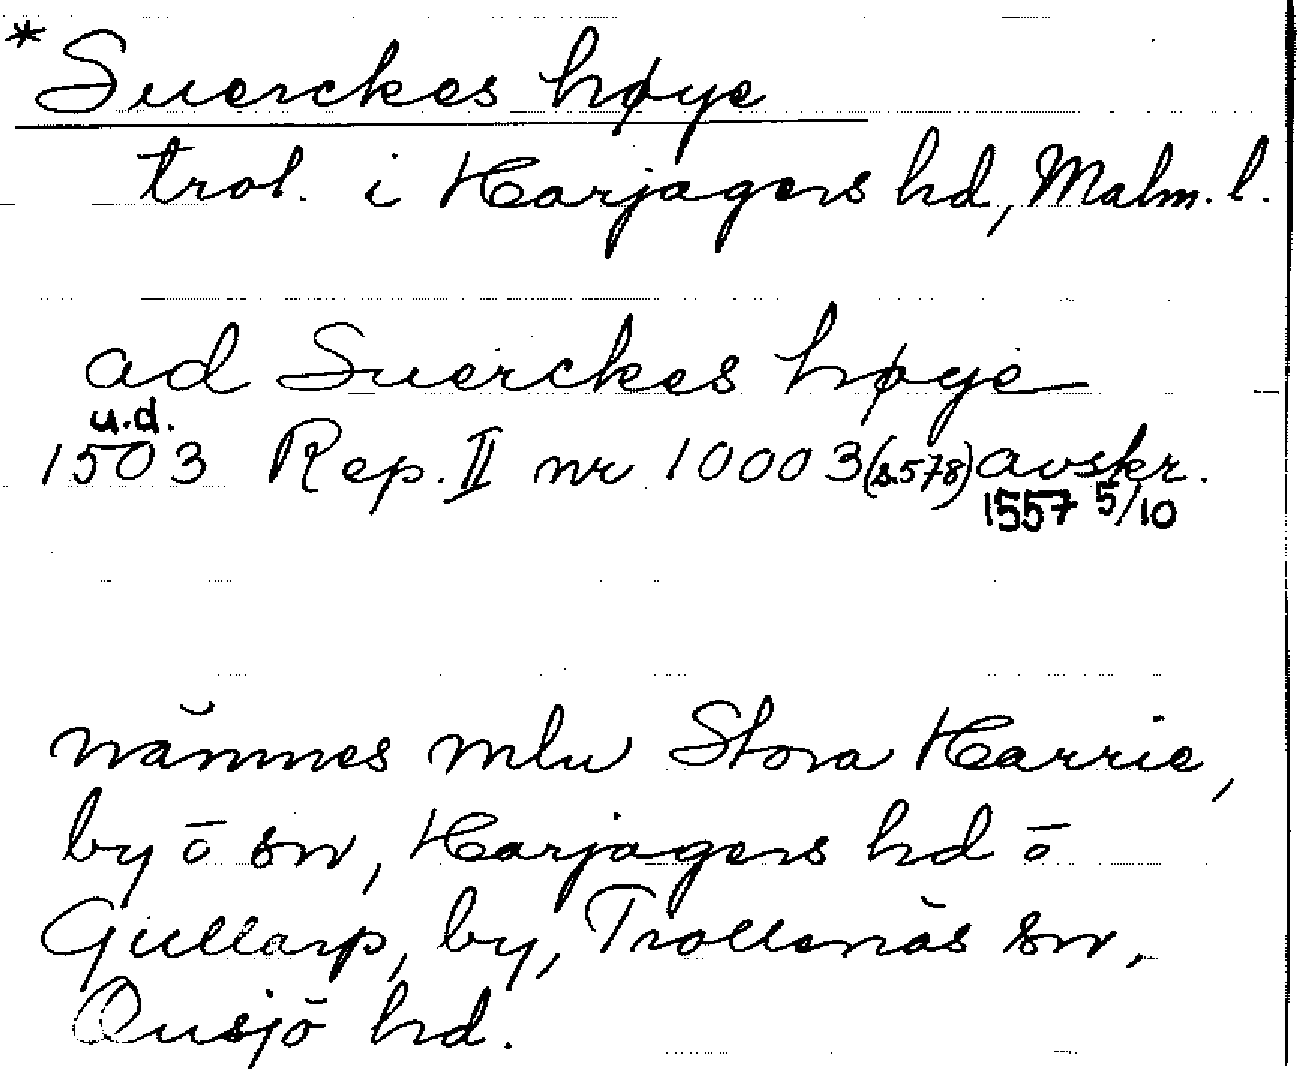 *Suerckes høye
trol. i Harjagers hd, Malm. l.
ad Suerckes høye
u.d.
1503 Rep. II nr 10003 (s.578) avskr.
1557 5/10
nämnes mlu Stora Harrie,
by ō sn, Harjagers hd ō
Gullarp, by, Trollenäs sn,
Onsjö hd.